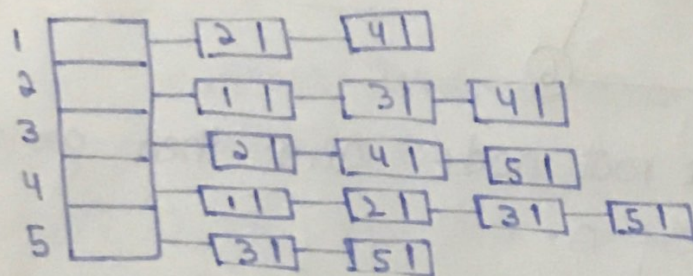 1 2 4
2 1 3 4
3 2 4 5
4 1 2 3 5
5 3 5